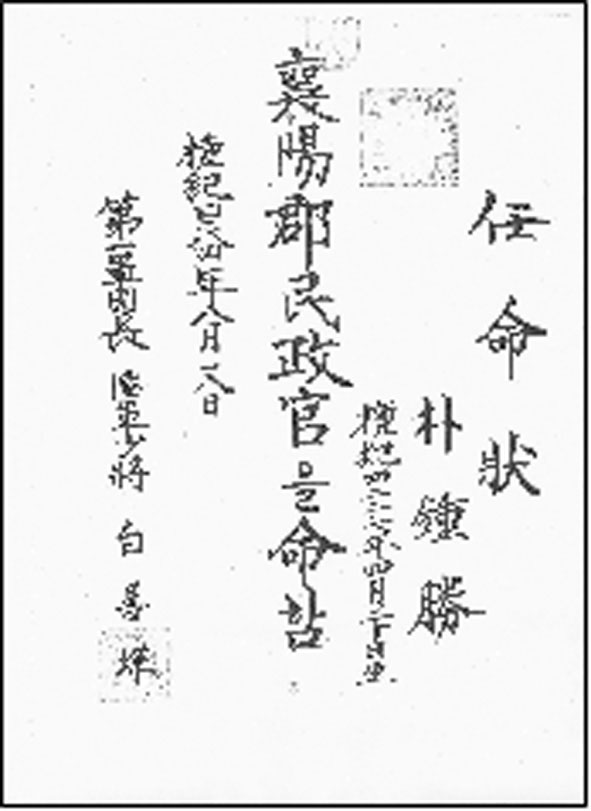 任命狀
朴鍾勝
檀紀四二年四月二十日生
襄陽郡民政官을命함
檀紀年八月日
第一軍團長 陸軍少將 白善燁